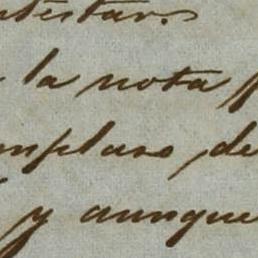 ntestar.
la nota
mplaso de
y aunque